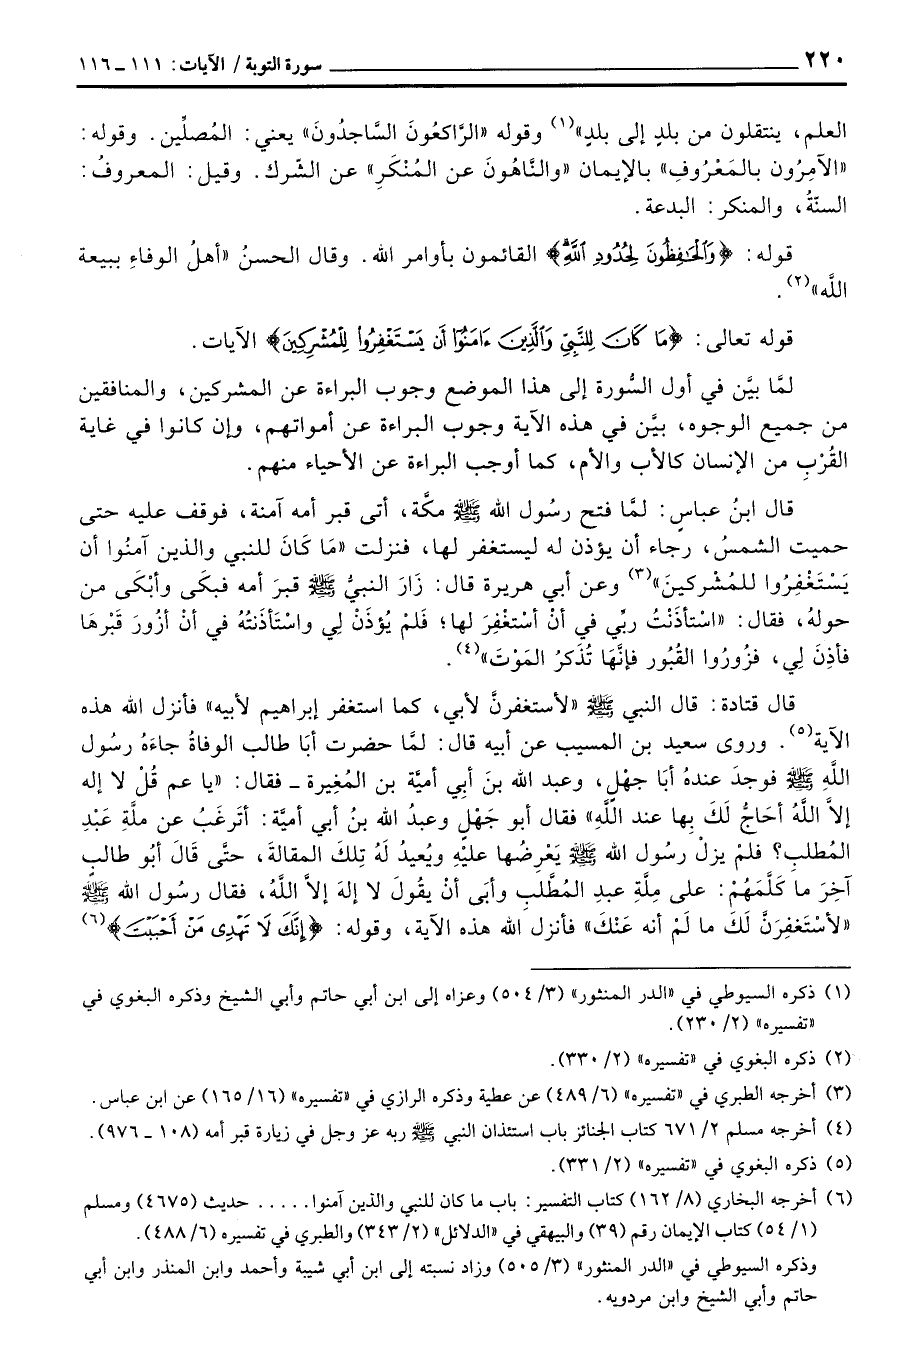 ٢٢٠ سورة التوبة / الآيات: ١١١ ـ ١١٦
العلم، ينتقلون من بلدٍ إلى بلدٍ»(١) وقوله «الرَّاكعُونَ السَّاجدُونَ» يعني: المُصلِّين. وقوله:
«الآمِرُون بالمَعْرُوفِ» بالإيمان «والنَّاهُونَ عن المُنْكَرِ» عن الشّرك. وقيل: المعروفُ:
السنّةُ، والمنكر: البدعة.
قوله: ﴿وَٱلْحَٰفِظُونَ لِحُدُودِ ٱللَّهِۗ﴾ القائمون بأوامر الله. وقال الحسنُ «أهلُ الوفاءِ ببيعة
اللَّه»(٢).
قوله تعالى: ﴿مَا كَانَ لِلنَّبِيِّ وَٱلَّذِينَ ءَامَنُوٓا۟ أَن يَسْتَغْفِرُوا۟ لِلْمُشْرِكِينَ﴾ الآيات.
لمَّا بيَّن في أول السُّورة إلى هذا الموضع وجوب البراءة عن المشركين، والمنافقين
من جميع الوجوه، بيَّن في هذه الآية وجوب البراءة عن أمواتهم، وإن كانوا في غاية
القُرْبِ من الإنسان كالأب والأم، كما أوجب البراءة عن الأحياء منهم.
قال ابنُ عباسٍ: لمَّا فتح رسُول الله ﷺ مكَّة، أتى قبر أمه آمنة، فوقف عليه حتى
حميت الشمسُ، رجاء أن يؤذن له ليستغفر لها، فنزلت «مَا كَانَ للنبي والذين آمنُوا أن
يَسْتَغْفِرُوا للمُشْركينَ»(٣) وعن أبي هريرة قال: زَارَ النبيُّ ﷺ قبرَ أمه فبكَى وأبْكَى من
حولهُ، فقال: «اسْتأذَنْتُ ربِّي في أنْ أسْتغْفِرَ لها؛ فلَمْ يُؤذَنْ لِي واسْتَأذَنتُهُ في أنْ أزُورَ قَبْرهَا
فأذِنَ لِي، فزُورُوا القُبُور فإنَّهَا تُذَكرُ المَوْتَ»(٤).
قال قتادة: قال النبي ﷺ «لأستغفرنَّ لأبي، كما استغفر إبراهيم لأبيه» فأنزل الله هذه
الآية(٥). وروى سعيد بن المسيب عن أبيه قال: لمَّا حضرت أبَا طالب الوفاةُ جاءَهُ رسُول
اللَّهِ ﷺ فوجدَ عندهُ أبَا جهْلٍ، وعبد الله بنَ أبِي أميَّة بن المُغيرة ـ فقال: «يا عم قُلْ لا إله
إلاَّ اللَّهُ أحَاجُّ لَكَ بِها عند اللَّهِ» فقال أبو جَهْلٍ وعبدُ الله بنُ أبي أميَّة: أتَرغَبُ عن ملَّةِ عَبْدِ
المُطلبِ؟ فلمْ يزلْ رسُول الله ﷺ يَعْرِضُها عليْهِ ويُعيدُ لَهُ تِلكَ المقالةَ، حتَّى قَالَ أبُو طالبٍ
آخِرَ ما كلَّمَهُمْ: على مِلَّةِ عبدِ المُطَّلبِ وأبَى أنْ يقُولَ لا إلهَ إلاَّ اللَّهُ، فقال رسُول الله ﷺ
«لأسْتغفِرَنَّ لَكَ ما لَمْ أنه عَنْكَ» فأنزل الله هذه الآية، وقوله: ﴿إِنَّكَ لَا تَهْدِى مَنْ أَحْبَبْتَ﴾(٦)
(١) ذكره السيوطي في «الدر المنثور» (٣/ ٥٠٤) وعزاه إلى ابن أبي حاتم وأبي الشيخ وذكره البغوي في
«تفسيره» (٢/ ٢٣٠).
(٢) ذكره البغوي في «تفسيره» (٢/ ٣٣٠).
(٣) أخرجه الطبري في «تفسيره» (٦/ ٤٨٩) عن عطية وذكره الرازي في «تفسيره» (١٦/ ١٦٥) عن ابن عباس.
(٤) أخرجه مسلم ٢/ ٦٧١ كتاب الجنائز باب استئذان النبي ﷺ ربه عز وجل في زيارة قبر أمه (١٠٨ ـ ٩٧٦).
(٥) ذكره البغوي في «تفسيره» (٢/ ٣٣١).
(٦) أخرجه البخاري (٨/ ١٦٢) كتاب التفسير: باب ما كان للنبي والذين آمنوا..... حديث (٤٦٧٥) ومسلم
(١/ ٥٤) كتاب الإيمان رقم (٣٩) والبيهقي في «الدلائل» (٢/ ٣٤٣) والطبري في تفسيره (٦/ ٤٨٨).
وذكره السيوطي في «الدر المنثور» (٣/ ٥٠٥) وزاد نسبته إلى ابن أبي شيبة وأحمد وابن المنذر وابن أبي
حاتم وأبي الشيخ وابن مردويه.